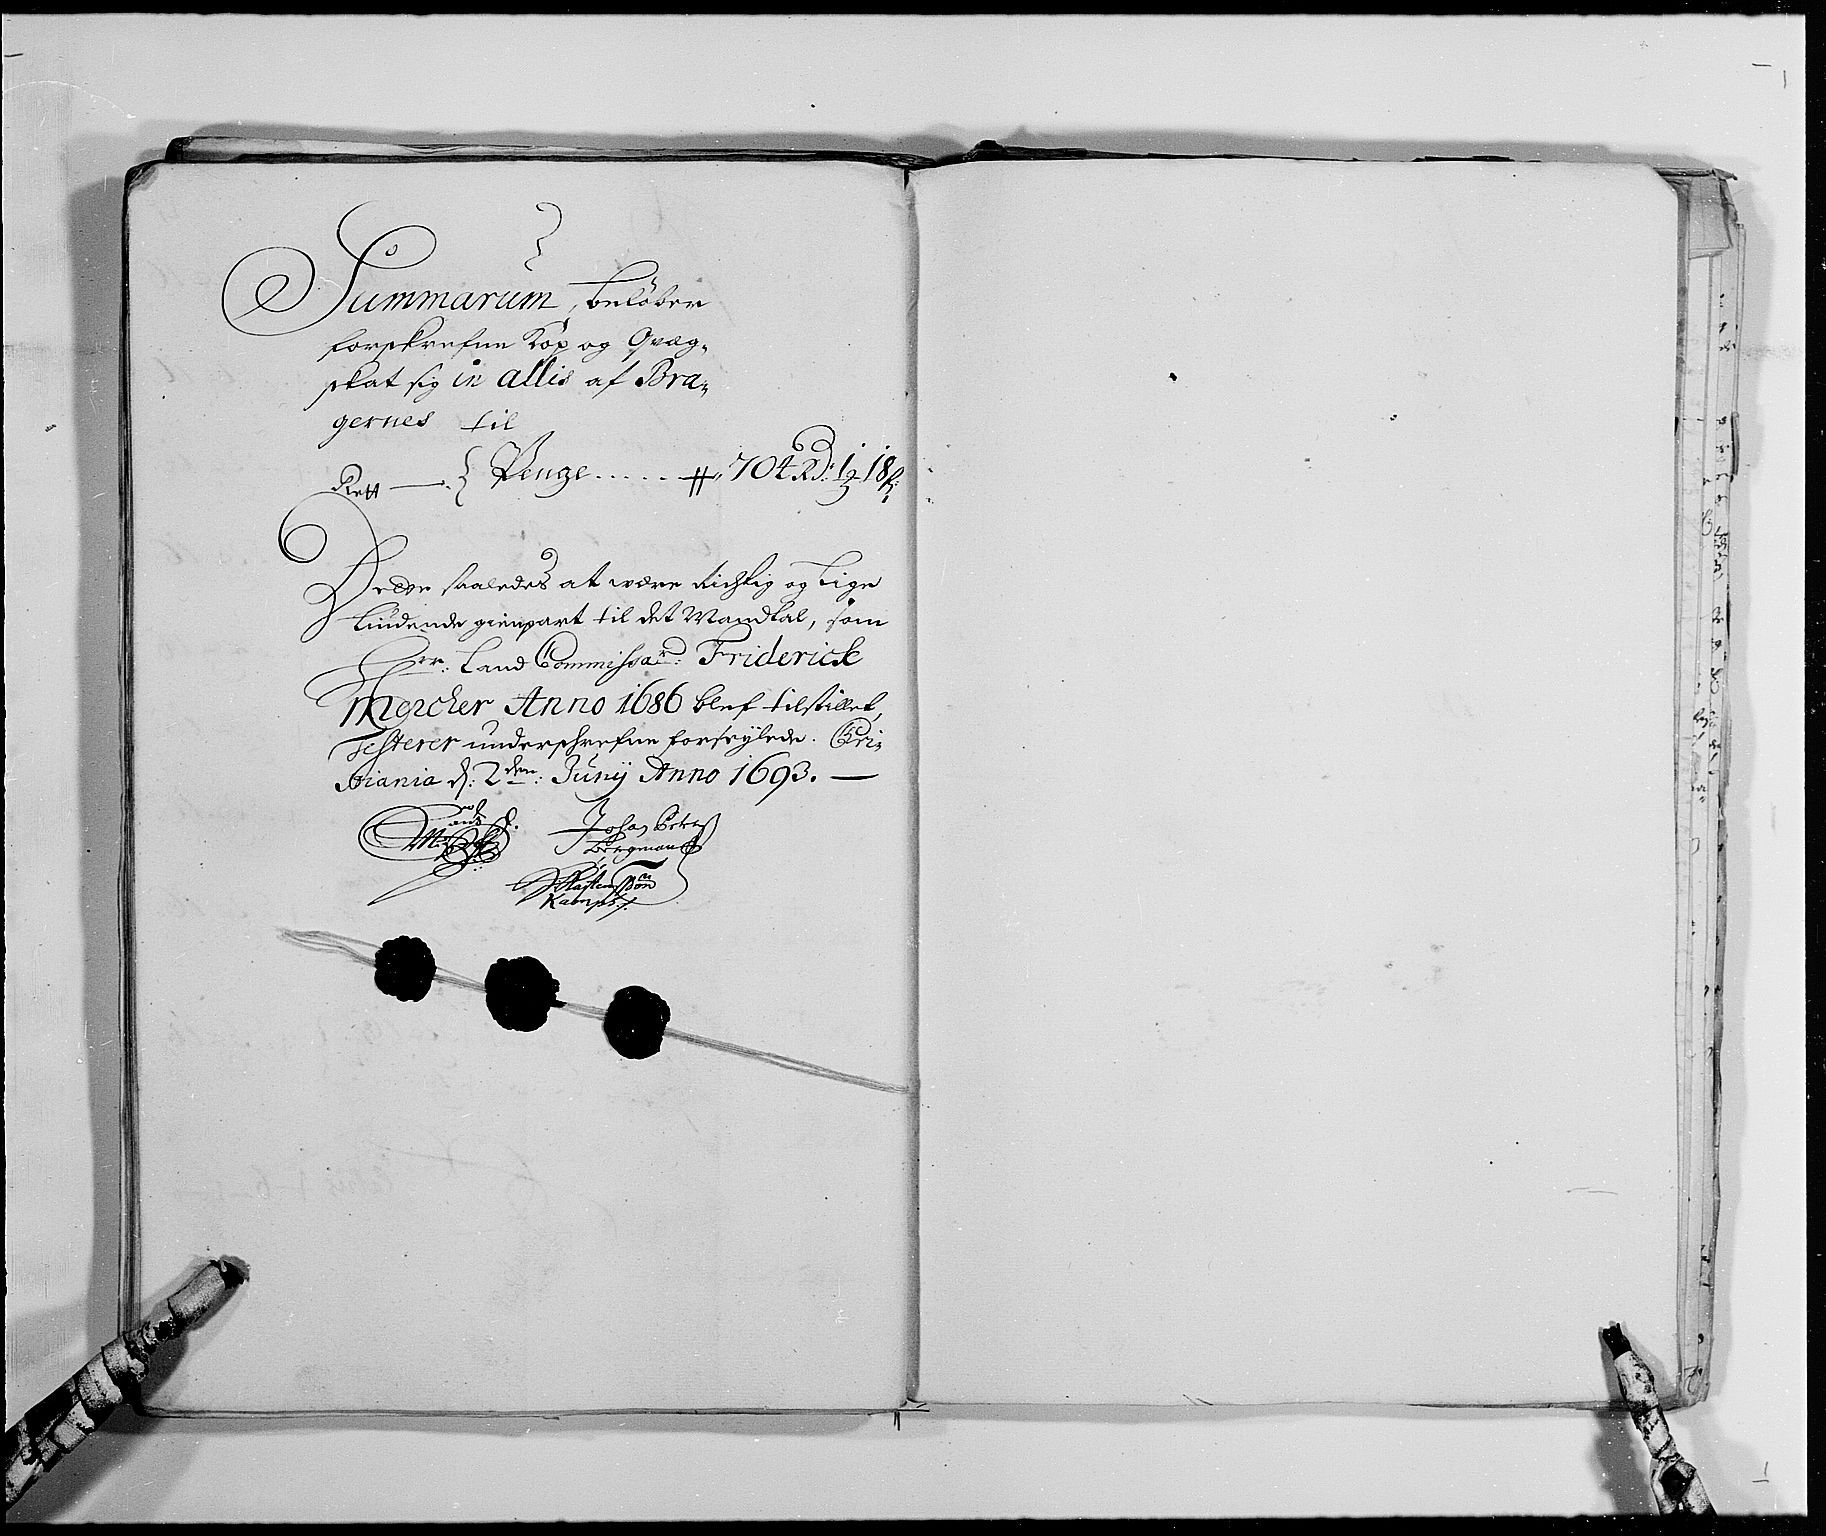 Summarum, beløber
forskrefne Kop og Qvæg-
skat sig in allis af Bra-
gernes til
Rett —. { Penge ..... 704 RD: 1½ 18 ß:
Dette saaledes at være Richtig og Lige
Liudende gienpart til det Mandtal, som
Hrr: Land Commissar: Friderick
Mercker Anno 1686 blef tilstillet,
Testerer underschrefne forseylede. Chri-
stiania d: 2den: Junij Anno 1693. —
Johan
Bergman
Kamp